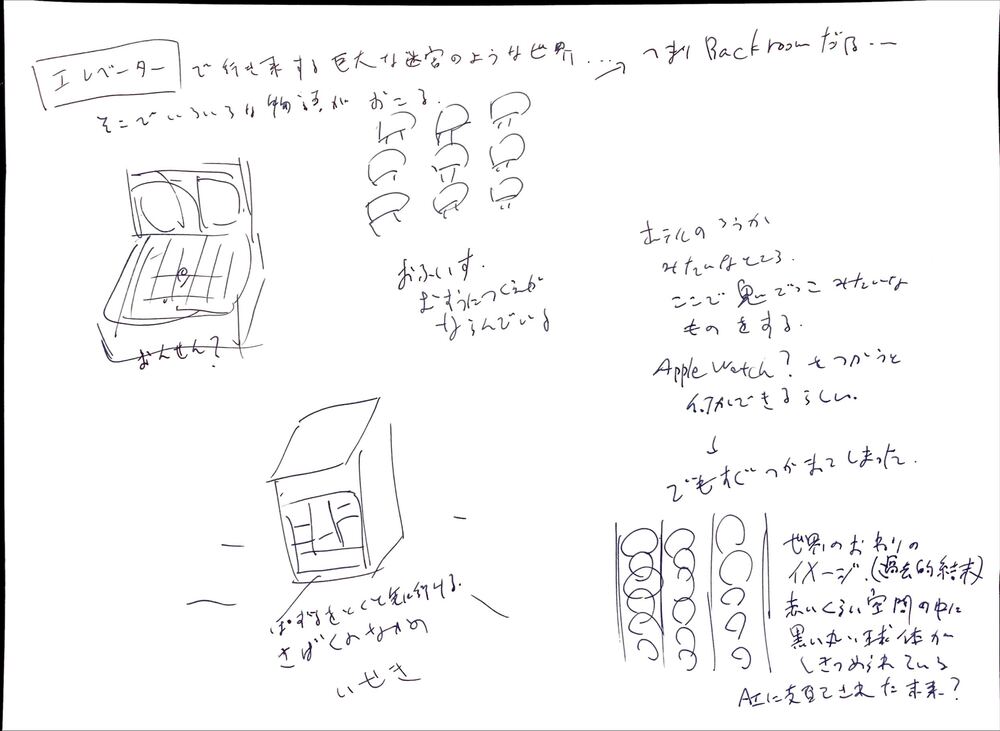 エレベーターで行き来する巨大な迷宮のような世界...→つまりBackroomだな...
そこでいろいろな物語がおこる.
おんせん?
おふぃす.
むすうにつくえが
ならんでいる
ホテルのろうか
みたいなところ.
ここで鬼ごっこみたいな
ものをする.
Apple Watch? をつかうと
できるらしい.
↓
でもすぐつかまってしまった.
ぱずるをとくと先に行ける.
さばくのなかの
いせき
世界のおわりの
イメージ.(過去的結末)
赤いくらい空間の中に
黒い丸い球体が
しきつめられている
AIに支配された未来?